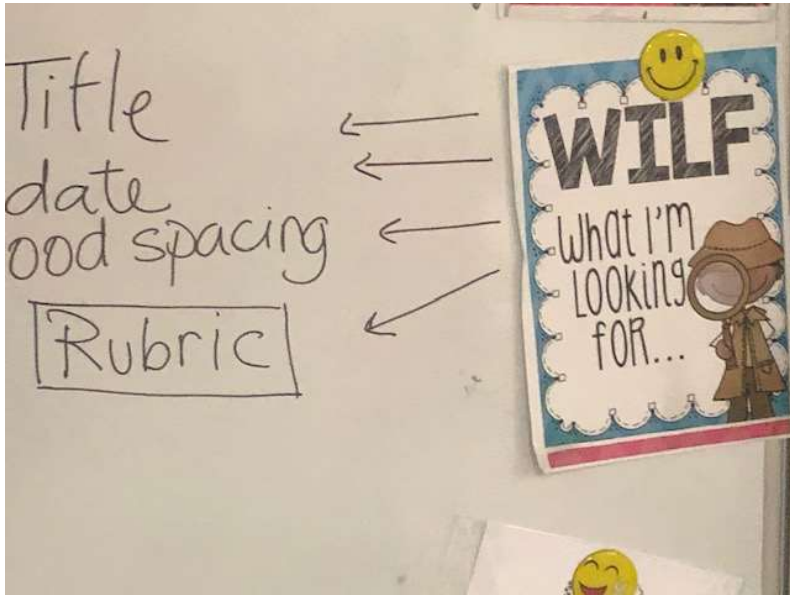 Title
date
ood spacing
Rubric
WILF
What I'm
LOOKing
fOR...